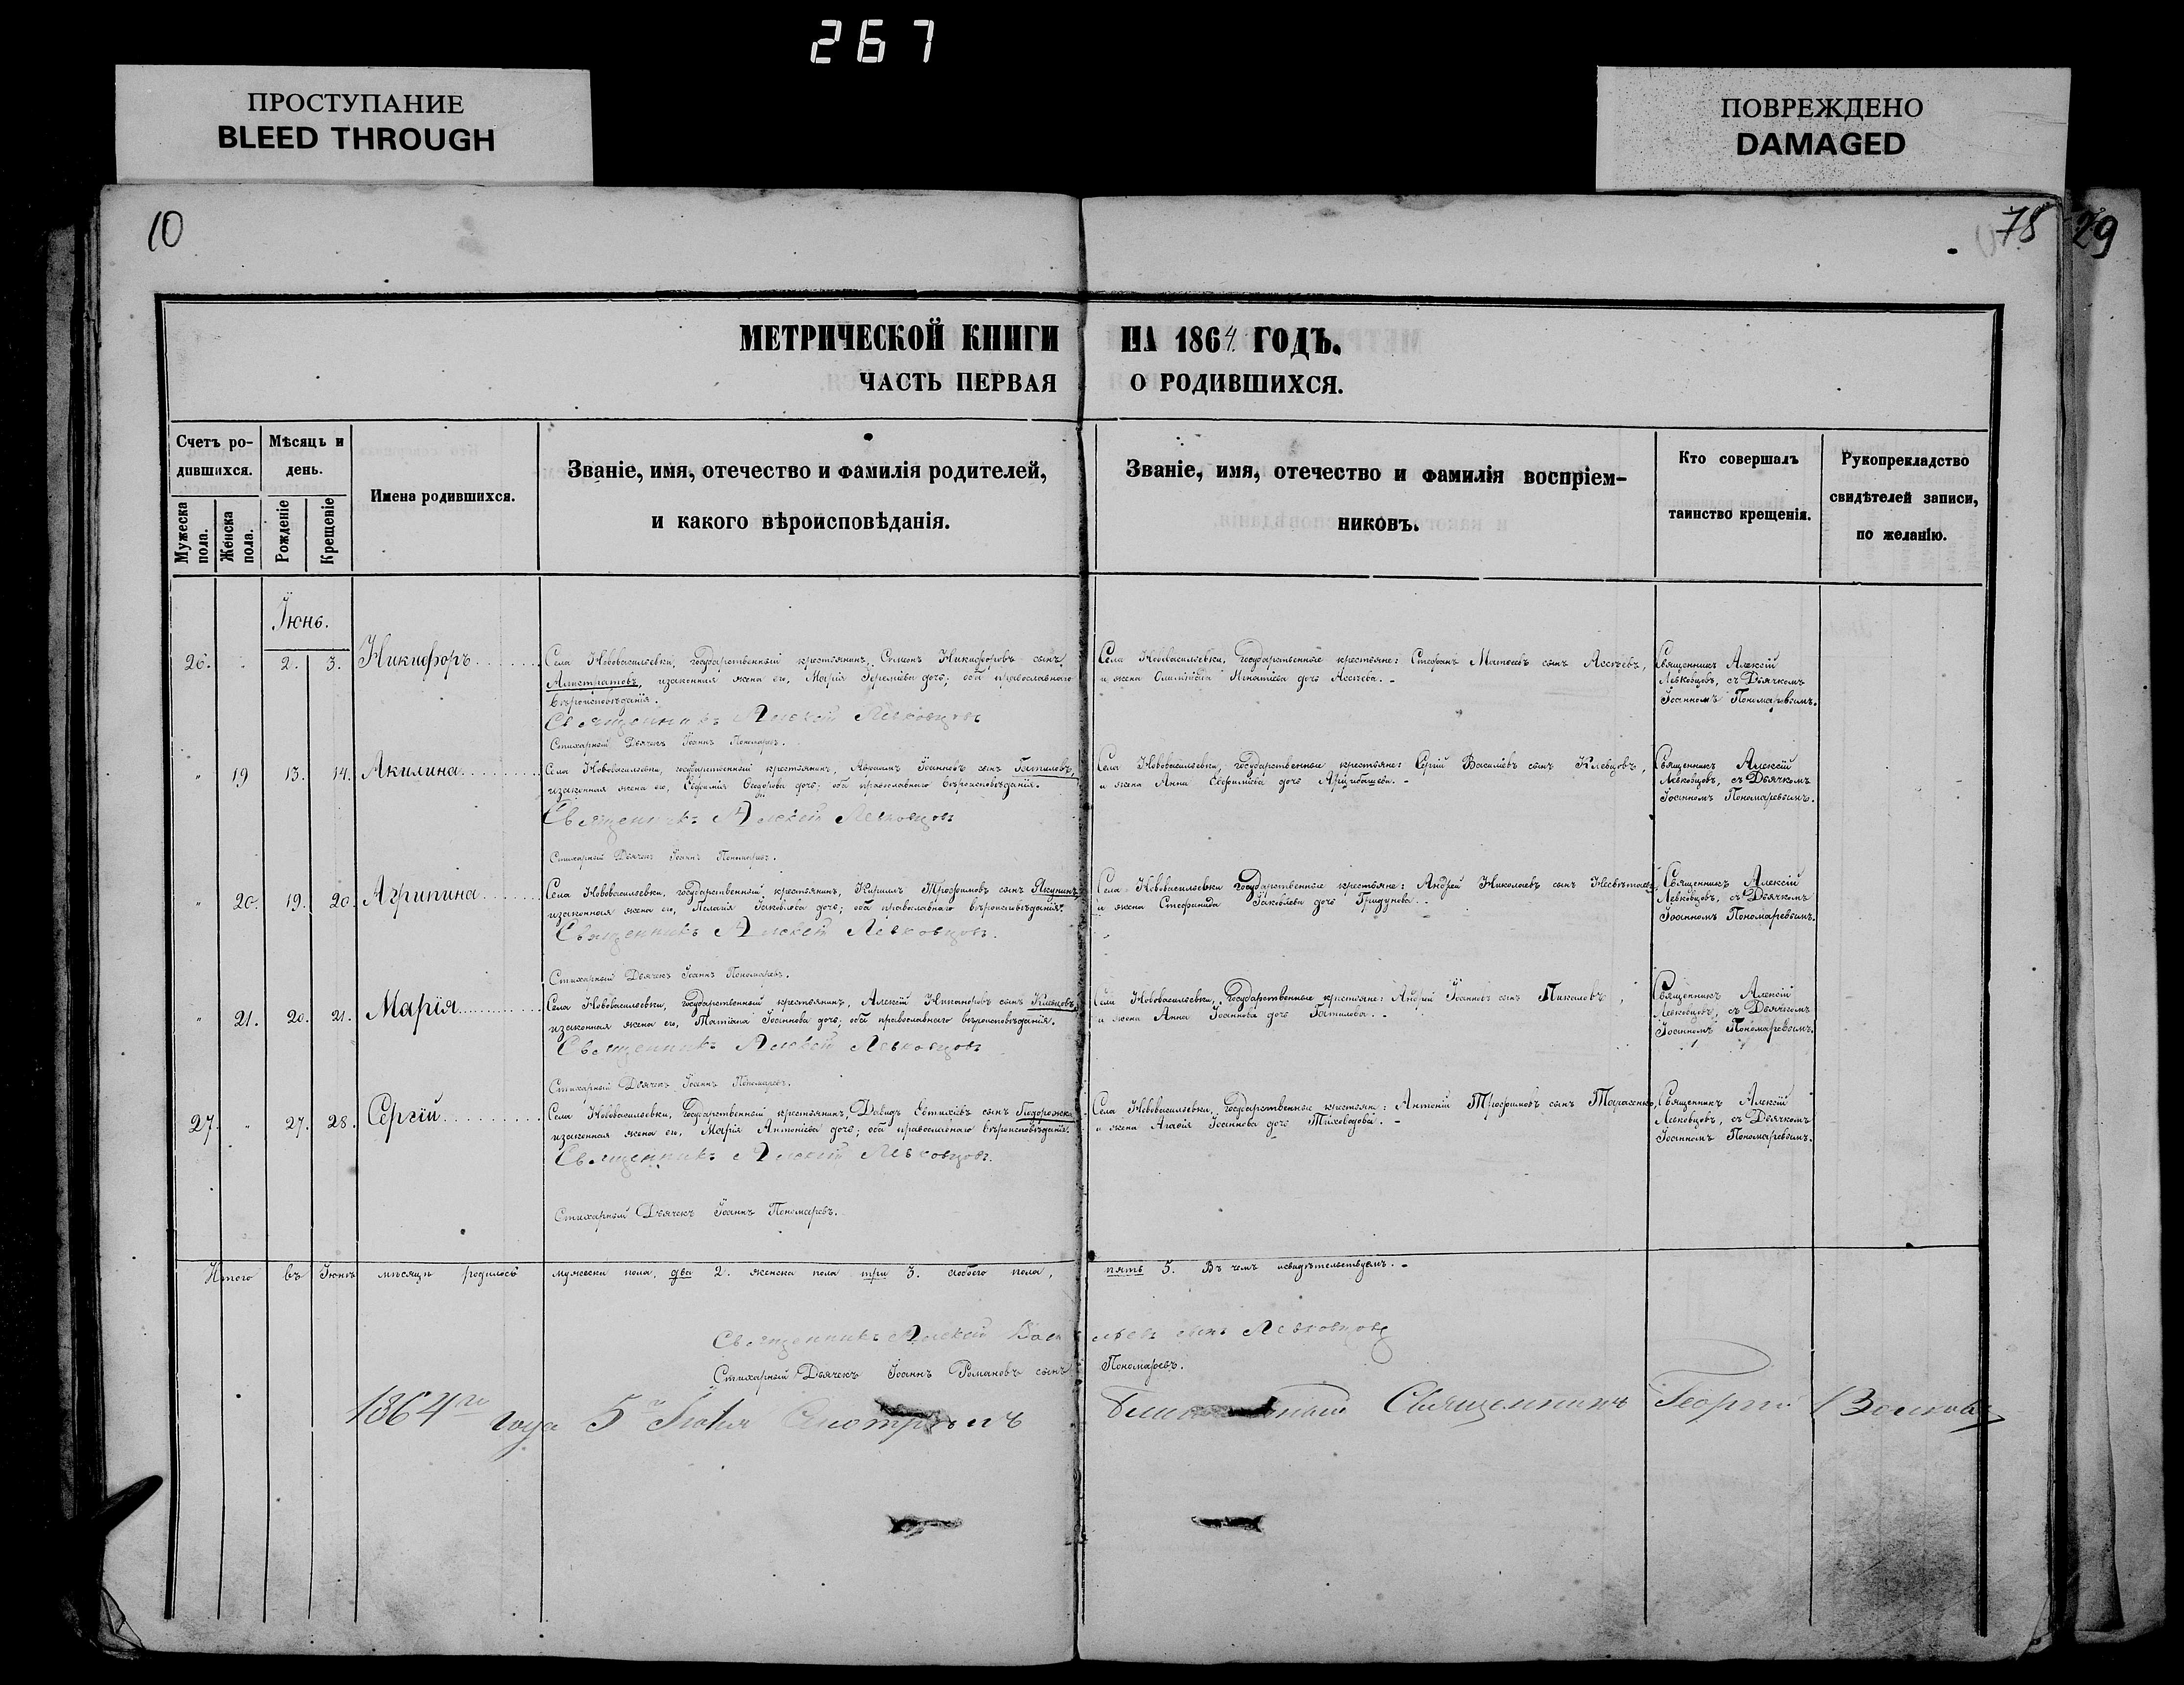 267
ПРОСТУПАНИЕ
BLEED THROUGH
ПОВРЕЖДЕНО
DAMAGED
10
78
29
МЕТРИЧЕСКОЙ КНИГИ НА 1864. ГОДЪ.
ЧАСТЬ ПЕРВАЯ О РОДИВШИХСЯ.
Счетъ ро-
дившихся.
Мужеска
пола.
Женска
пола.
Мѣсяцъ и
день.
Рожденіе
Крещеніе
Имена родившихся.
Званіе, имя, отечество и фамилія родителей,
и какого вѣроисповѣданія.
Званіе, имя, отечество и фамилія воспріем-
никовъ.
Кто совершалъ
таинство крещенія.
Рукопрекладство
свидѣтелей записи,
по желанію.
Іюнь.
26. " 2. 3. Никифоръ
Села Нововасильевки, государственный крестьянинъ, Симеонъ Никифоровъ сынъ
Алистратовъ, изаконная жена его, Марія Іереміева дочь; оба православнаго
вѣроисповѣданія.
Священникъ Алексій Левковцовъ
Стихарный Дьячекъ Іоаннъ Пономаревъ.
Села Нововасильевки, государственные крестьяне: Стефанъ Матѳеевъ сынъ Ассѣевъ,
и жена Олимпіада Игнатіева дочь Ассѣева. -
Священникъ Алексій
Левковцовъ, съ Дьячкомъ
Іоанномъ Пономаревымъ.
" 19 13. 14. Акилина
Села Нововасильевки, государственный крестьянинъ, Іоанновъ сынъ Гатиловъ,
изаконная жена его, Евфимія Ѳеодорова дочь; оба православнаго вѣроисповѣданія.
Священникъ Алексій Левковцовъ
Стихарный Дьячекъ Іоаннъ Пономаревъ.
Села Нововасильевки, государственные крестьяне: Сергій Василіевъ сынъ Клевцовъ,
и жена Анна Евфиміева дочь Арцибашева. -
Священникъ Алексій
Левковцовъ, съ Дьячкомъ
Іоанномъ Пономаревымъ.
" 20. 19. 20. Агрипина
Села Нововасильевки, государственный крестьянинъ, Кирилъ Трофимовъ сынъ Якунинъ,
изаконная жена его, Пелагія Іаковлева дочь; оба православнаго вѣроисповѣданія.
Священникъ Алексій Левковцовъ.
Стихарный Дьячекъ Іоаннъ Пономаревъ.
Села Нововасильевки государственные крестьяне: Андрей Николаевъ сынъ
и жена Стефанида Іаковлева дочь Гридунова.
Священникъ Алексій
Левковцовъ, съ Дьячкомъ
Іоанномъ Пономаревымъ.
" 21. 20. 21. Марія
Села Нововасильевки, государственный крестьянинъ, Алексій Никаноровъ сынъ Клевцовъ,
изаконная жена его, Татіана Іоаннова дочь; оба православнаго вѣроисповѣданія.
Священникъ Алексій Левковцовъ
Стихарный Дьячекъ Іоаннъ Пономаревъ.
Села Нововасильевки, государственные крестьяне: Андрей Іоанновъ сынъ Пикаловъ,
и жена Анна Іоаннова дочь Гатилова. -
Священникъ Алексій
Левковцовъ, съ Дьячкомъ
Іоанномъ Пономаревымъ.
27. " 27. 28. Сергій
Села Нововасильевки, государственный крестьянинъ, Давидъ Евтихіевъ сынъ
изаконная жена его, Марія Антоніева дочь; оба православнаго вѣроисповѣданія.
Священникъ Алексій Левковцовъ.
Стихарный Дьячекъ Іоаннъ Пономаревъ.
Села Нововасильевки, государственные крестьяне: Антоній Трофимовъ сынъ Тарасенко,
и жена Агафія Іоаннова дочь Тиховодова. -
Священникъ Алексій
Левковцовъ, съ Дьячкомъ
Іоанномъ Пономаревымъ.
Итого въ Іюнѣ мѣсяцѣ родилось мужеска пола, два 2. женска пола три 3. обоего пола, пять 5. Въ чемъ исвидѣтельствуемъ. -
Священникъ Алексій Васильевъ сынъ Левковцовъ
Стихарный Дьячекъ Іоаннъ Романовъ сынъ Пономаревъ.
1864го года 5 Іюля Священникъ Георгій Волковъ